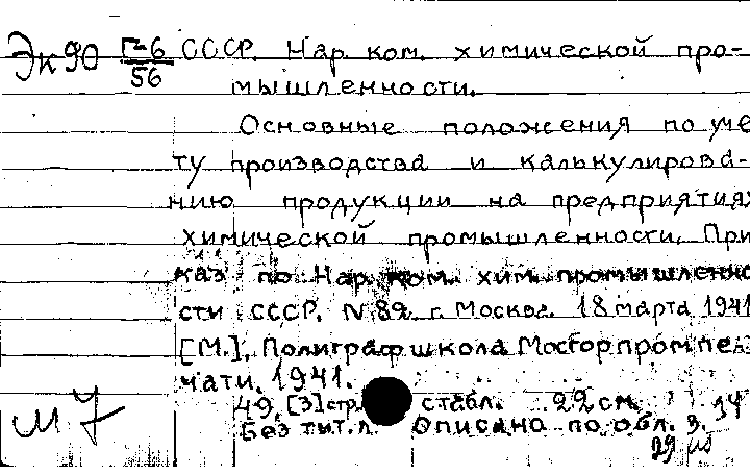 Эк90 Г-6/56 СССР. Нар. ком. химической про-
мышленности.
Основные положения по уче
ту производства и калькулирова-
нию продукции на предприятиях
химической промышленности. При
каз по Нар. ком. хим. промышленно
сти СССР. N 82 г. Москва. 18 марта 1941
[М.], Полиграфшкола Мосгорпромпе-
чати, 1941.
49, [3] стр. с табл. 22 см.
Без тит. л. Описано по обл.